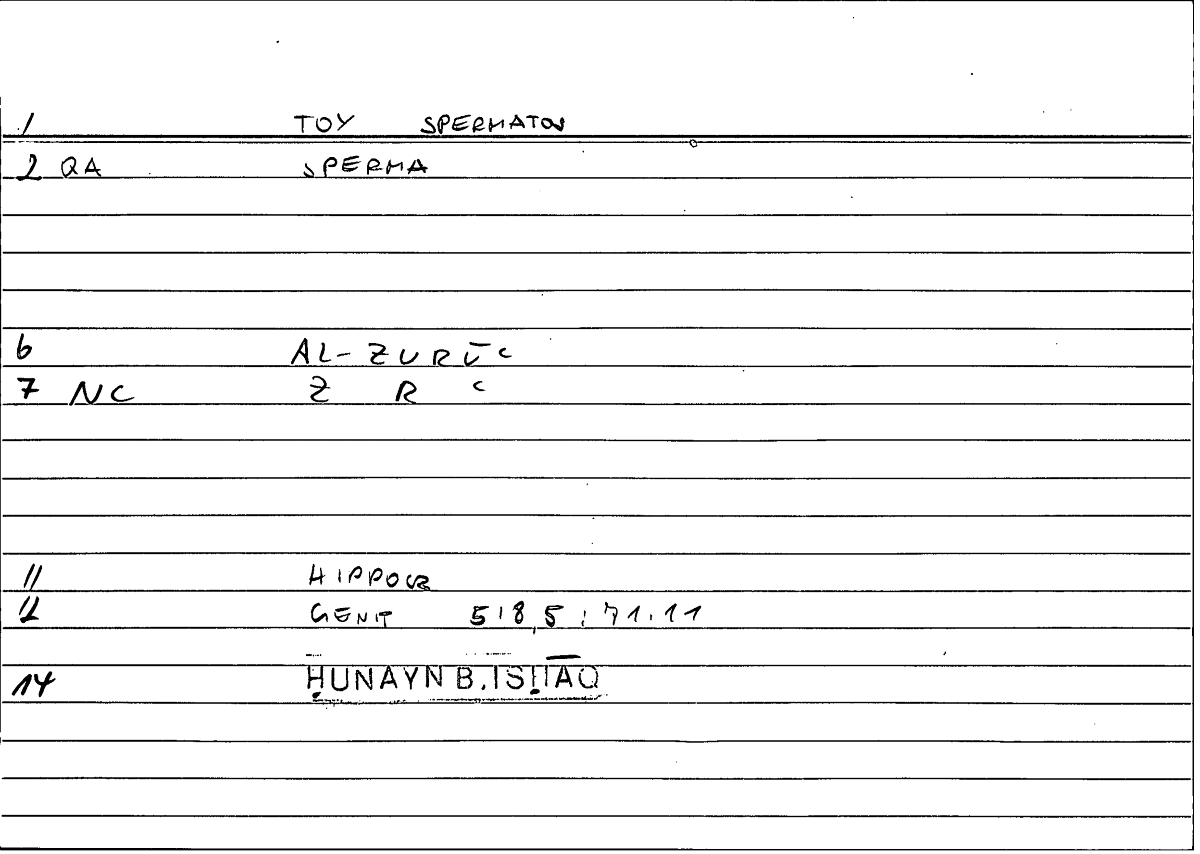 1 TOY SPERMATOS
2 QA SPERMA
6 AL-ZURŪʿ
7 NC Z R ʿ
11 HIPPOCR
12 GENIT 518,5 : 71.11
14 ḤUNAYN B. ISḤĀQ